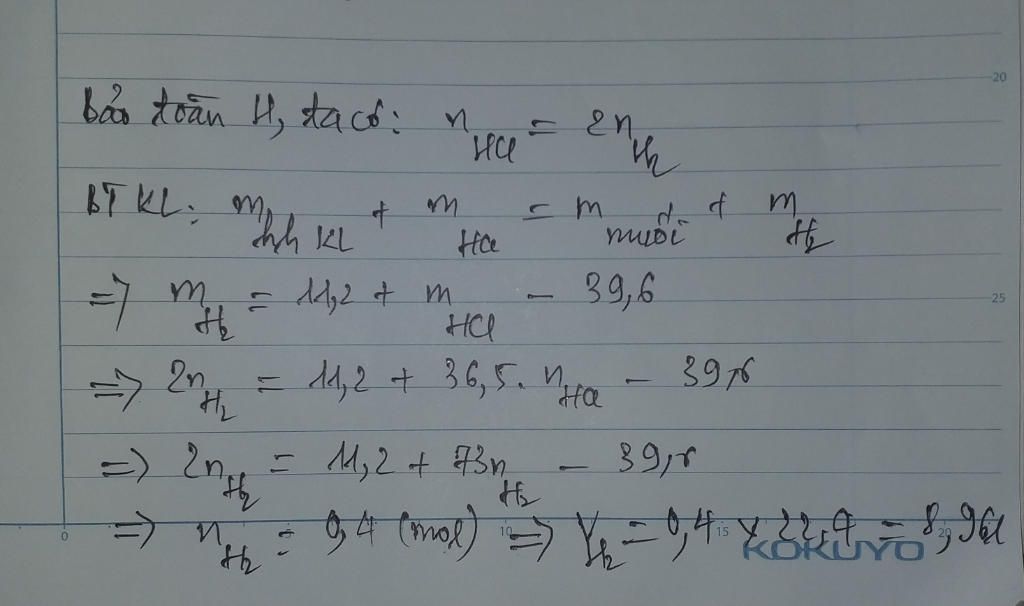 20
bảo toàn H, ta có: n HCl = 2n H2
BT KL: m hh KL + m HCl = m muối + m H2
=> m H2 = 11,2 + m HCl - 39,6
25
=> 2n H2 = 11,2 + 36,5. n HCl - 39,6
=> 2n H2 = 11,2 + 73n H2 - 39,6
=> n H2 = 0,4 (mol) => V H2 = 0,4 x 22,4 = 8,96l
0 10 15 20
KOKUYO